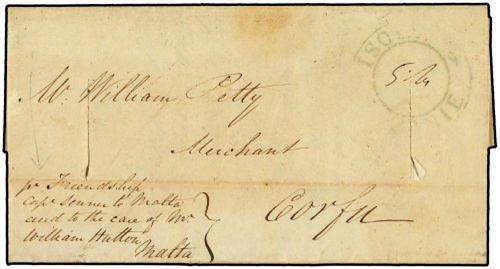 ISO
IE
Mr. William Petty
Merchant
Corfu
pr Friendship
capn Senner to Malta
and to the care of Mr
William Hutton
Malta